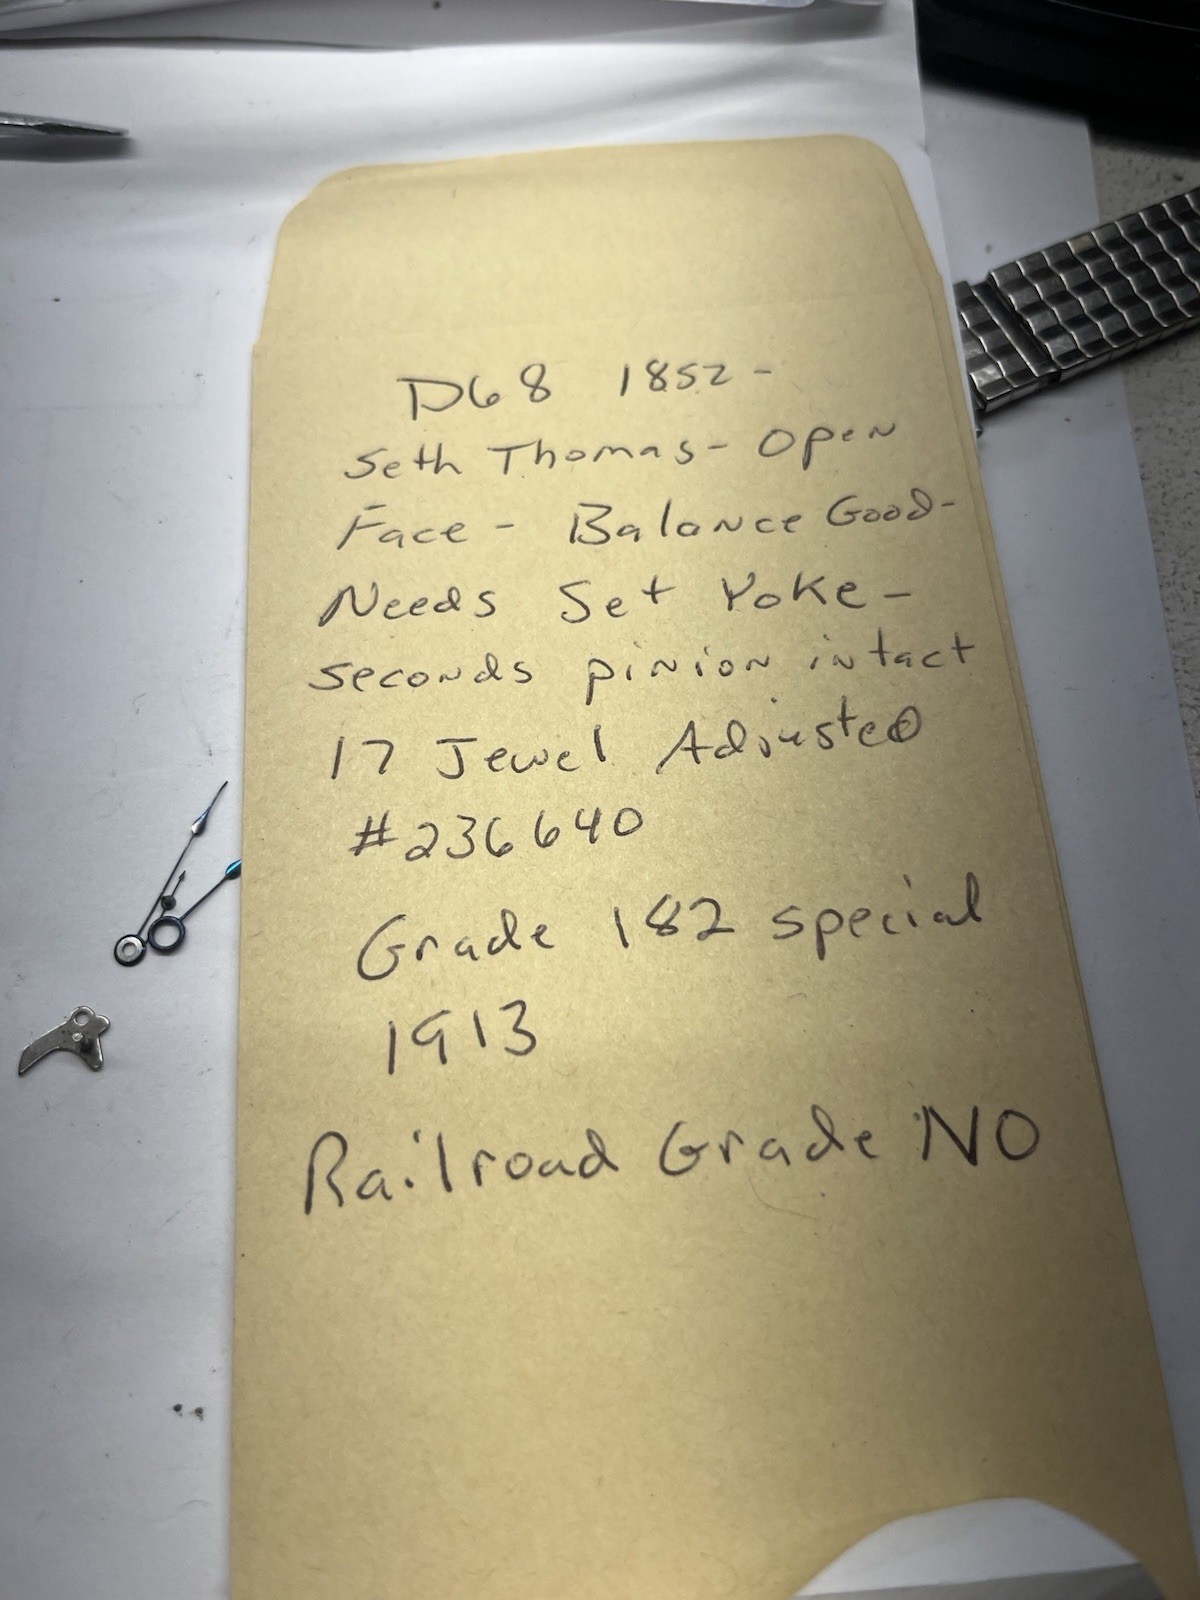 D68 1852-
Seth Thomas- Open
Face - Balance Good-
Needs Set Yoke-
seconds pinion intact
17 Jewel Adjusted
#236640
Grade 182 special
1913
Railroad Grade NO